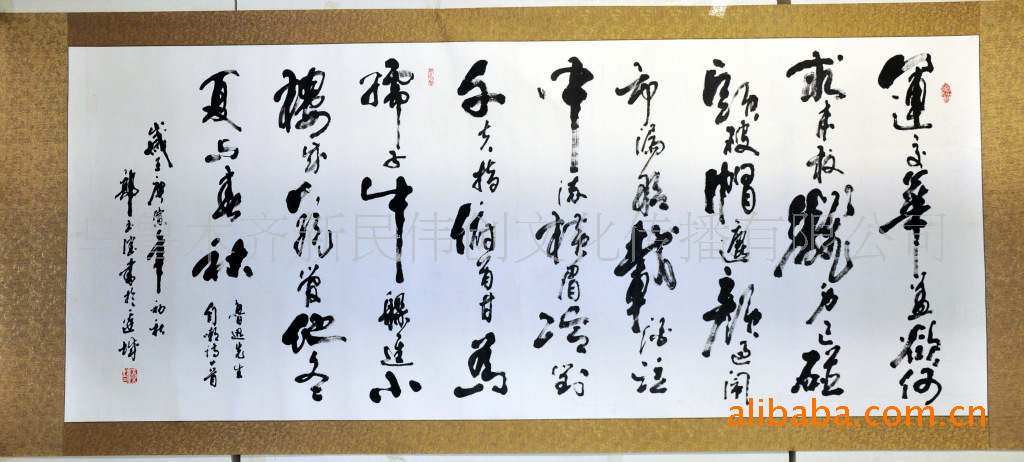 運交華盖欲何
求未敢翻身已碰
頭破帽遮顏過鬧
市漏船載酒泛
中流橫眉冷對
千夫指俯首甘為
孺子牛躲進小
樓成一統管他冬
夏与春秋
魯迅先生
自嘲詩一首
歲至庚寅年初秋
書於邊城
乌鲁木齐新民伟创文化传播有限公司
alibaba.com.cn